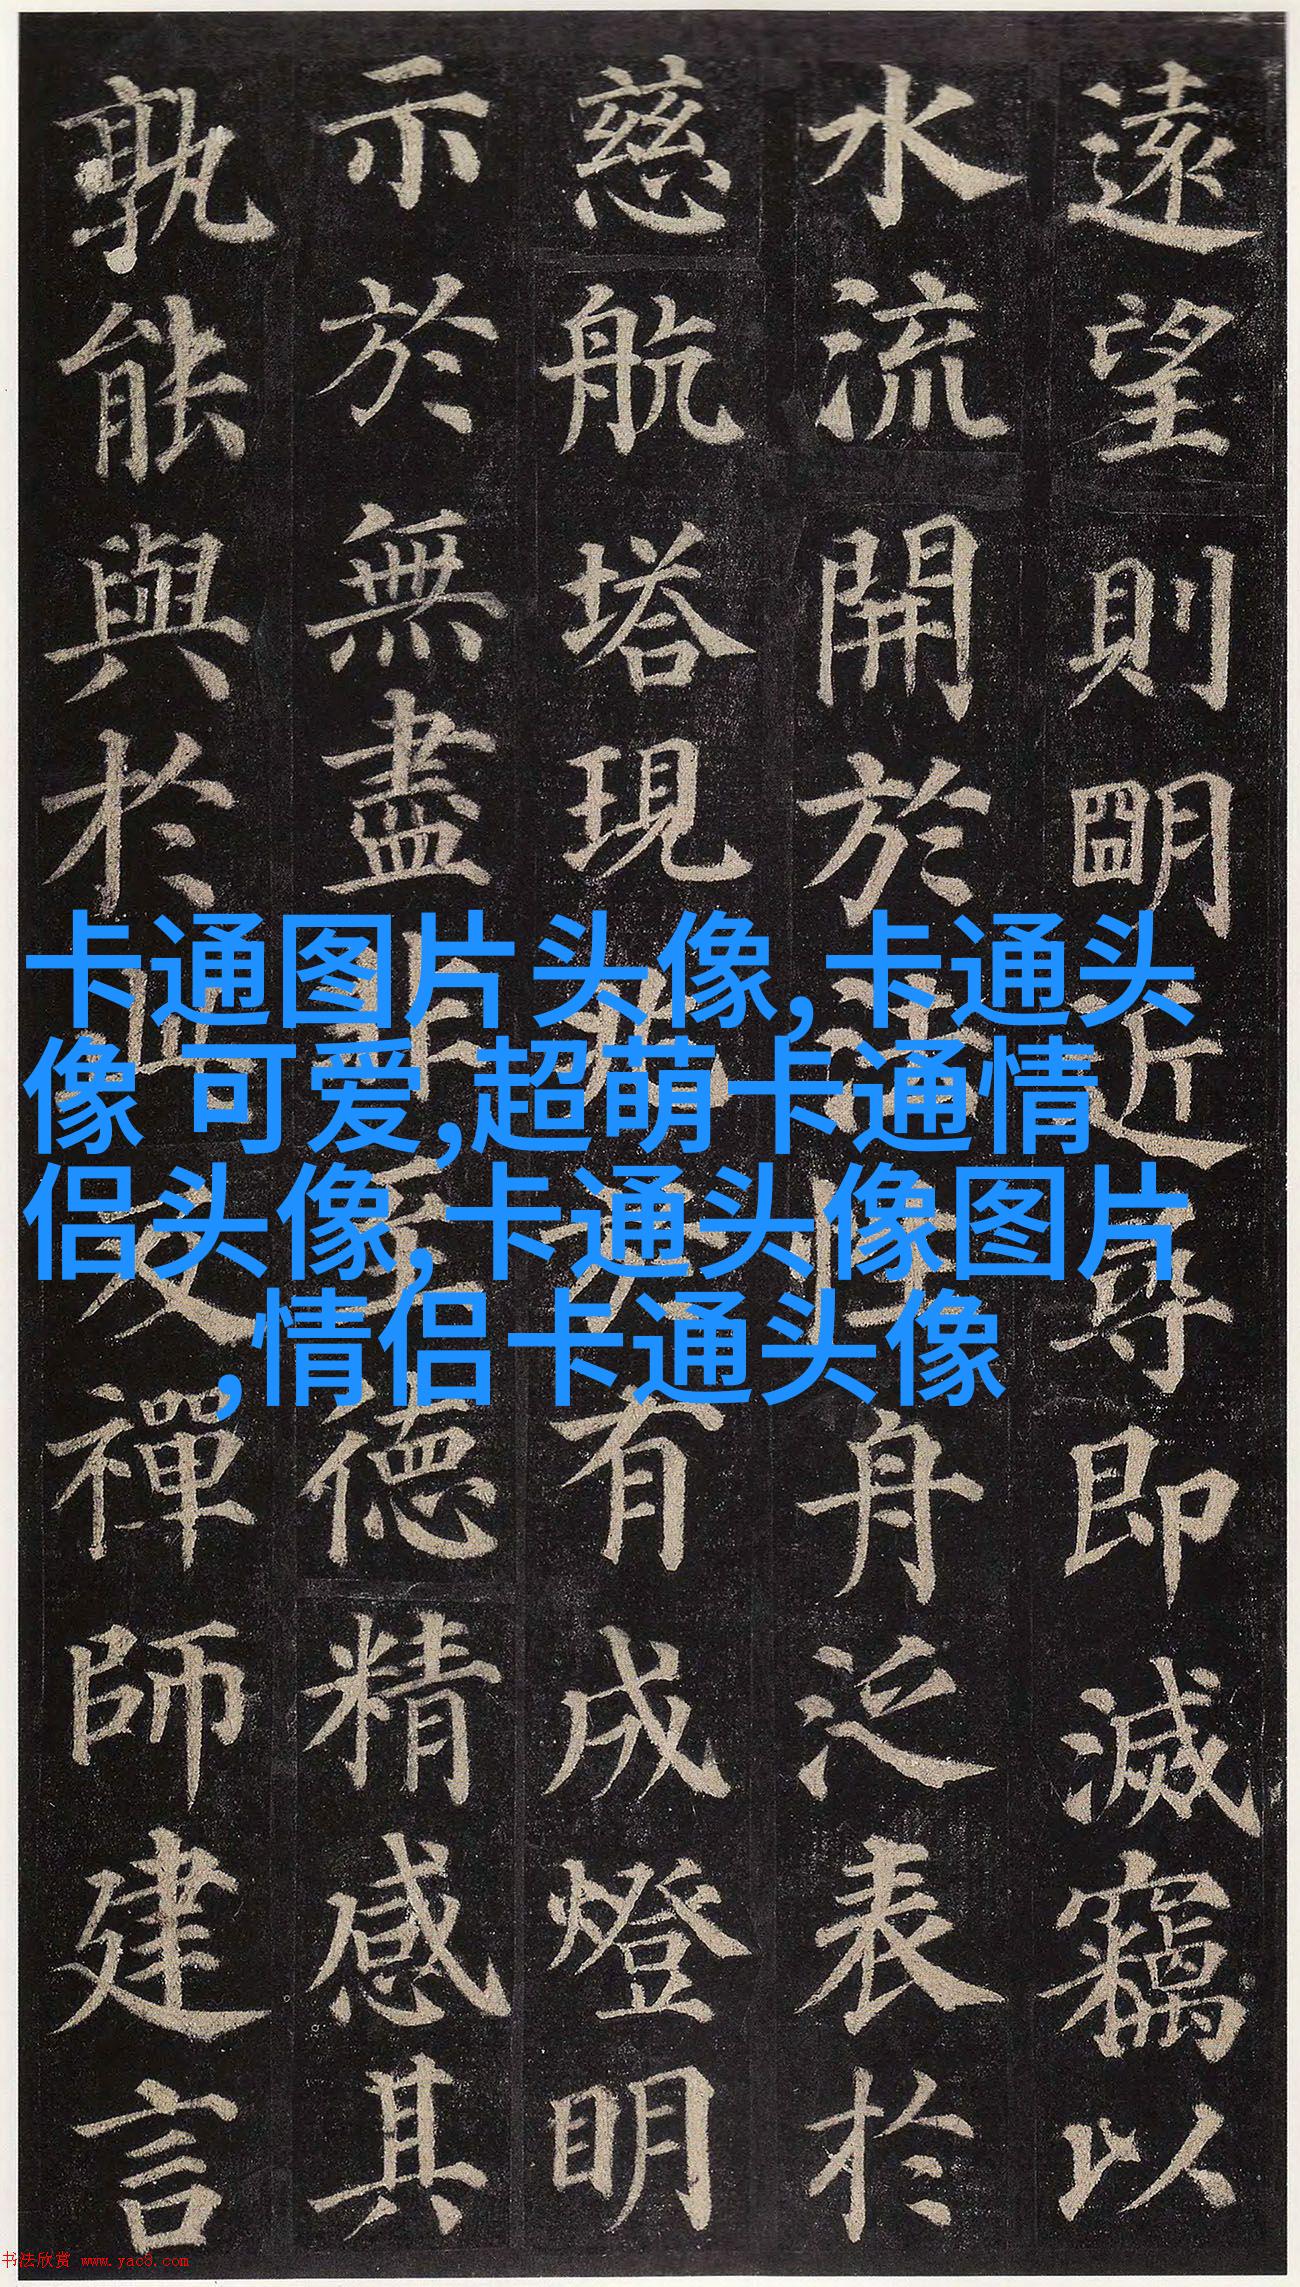 遠望則朙近尋即滅竊以
水流開於法性舟泛表於
慈航塔現兆於有成燈明
示於無盡非至德精感其
孰能與於此及禪師建言
卡通图片头像,卡通头
像 可爱,超萌卡通情
侣头像,卡通头像图片
,情侣卡通头像
书法欣赏 www.yac8.com